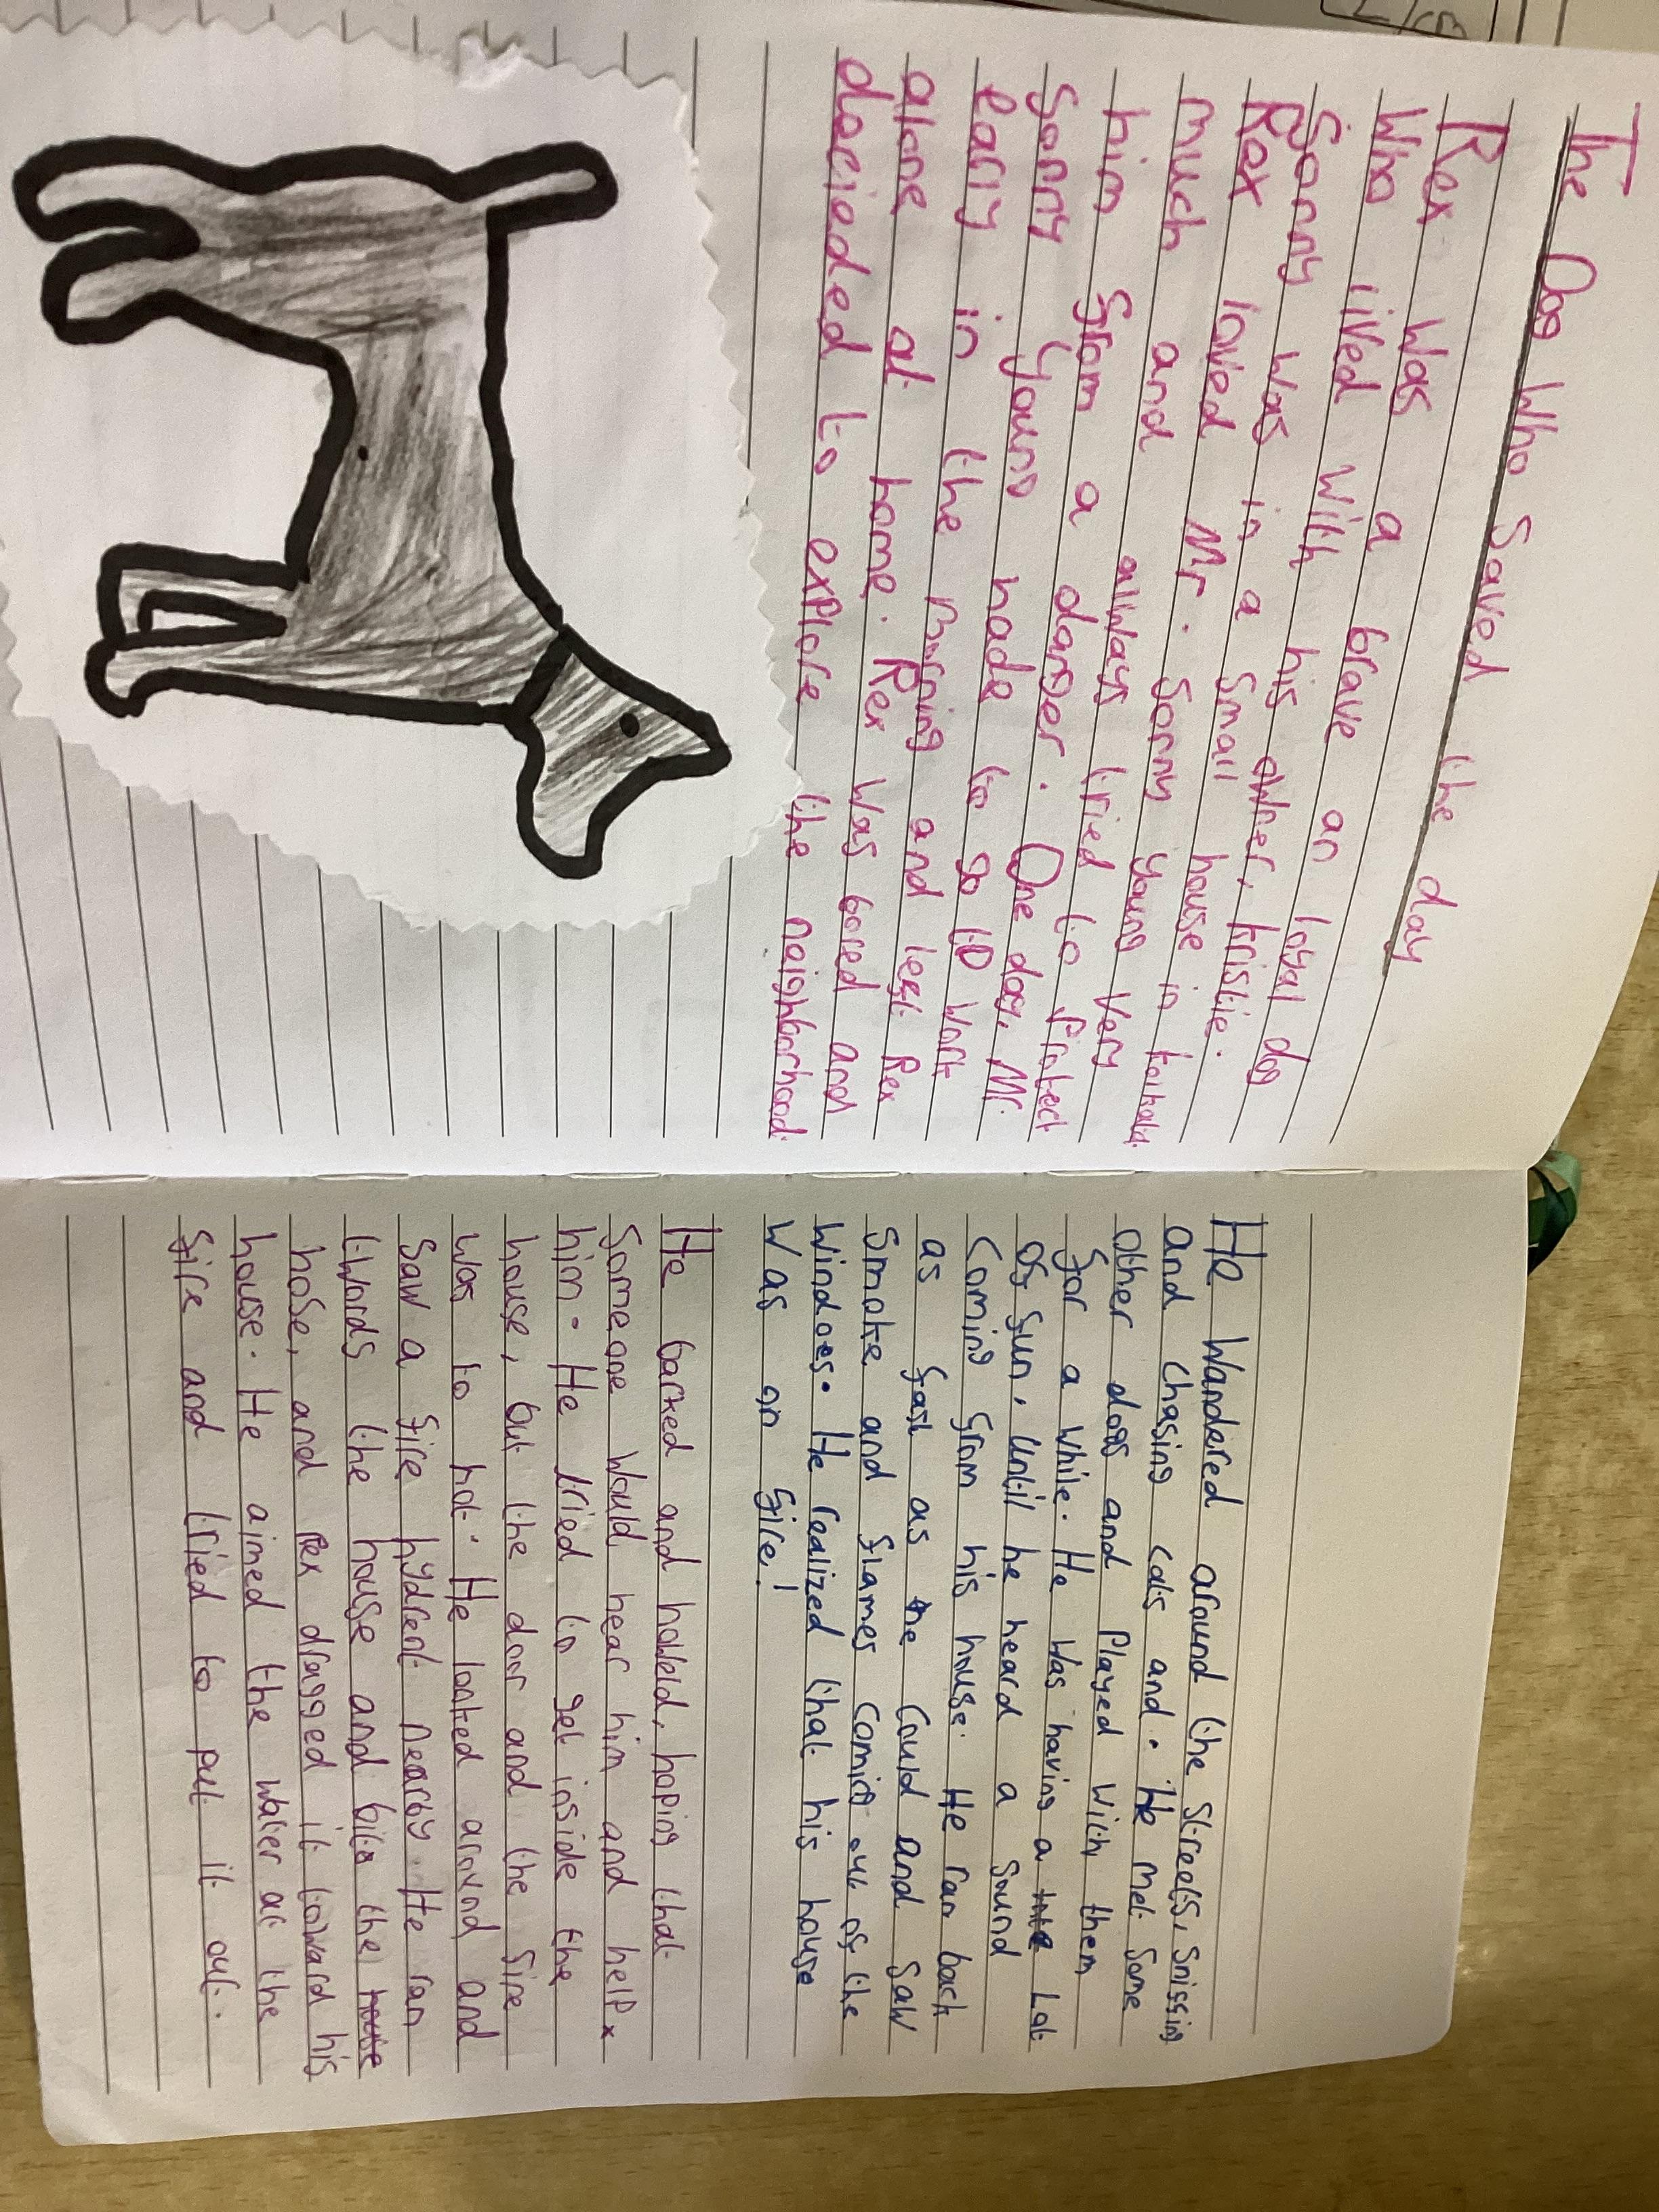 The Dog Who Saved the day
Rex was a brave an loyal dog
Who lived with his owner, kristie.
Sonny was in a small house in
Rex loved Mr. Sonny young very
much and always tried to Protect
him from a danger. One day, Mr.
Sonny young hade to go to work
early in the morning and left Rex
alone at home. Rex was bored and
decieded to explore the naighborhood.
He wandered around the streets, sniffing
and chasing cats and. He met some
other dogs and Played with them
for a while. He was having a Lot
of fun, until he heard a sound
Coming from his house. He ran back
as fast as he could and saw
Smoke and flames coming out of the
windoes. He realized that his house
Was on fire!
He barked and howeld, hoping that
Someone would hear him and help
him. He tried to get inside the
house, but the door and the fire
was to hot. He looked around and
saw a fire hydrent nearby. He ran
twords the house and bite the house
hose, and Rex dragged it toward his
house. He aimed the water at the
fire and tried to put it out.